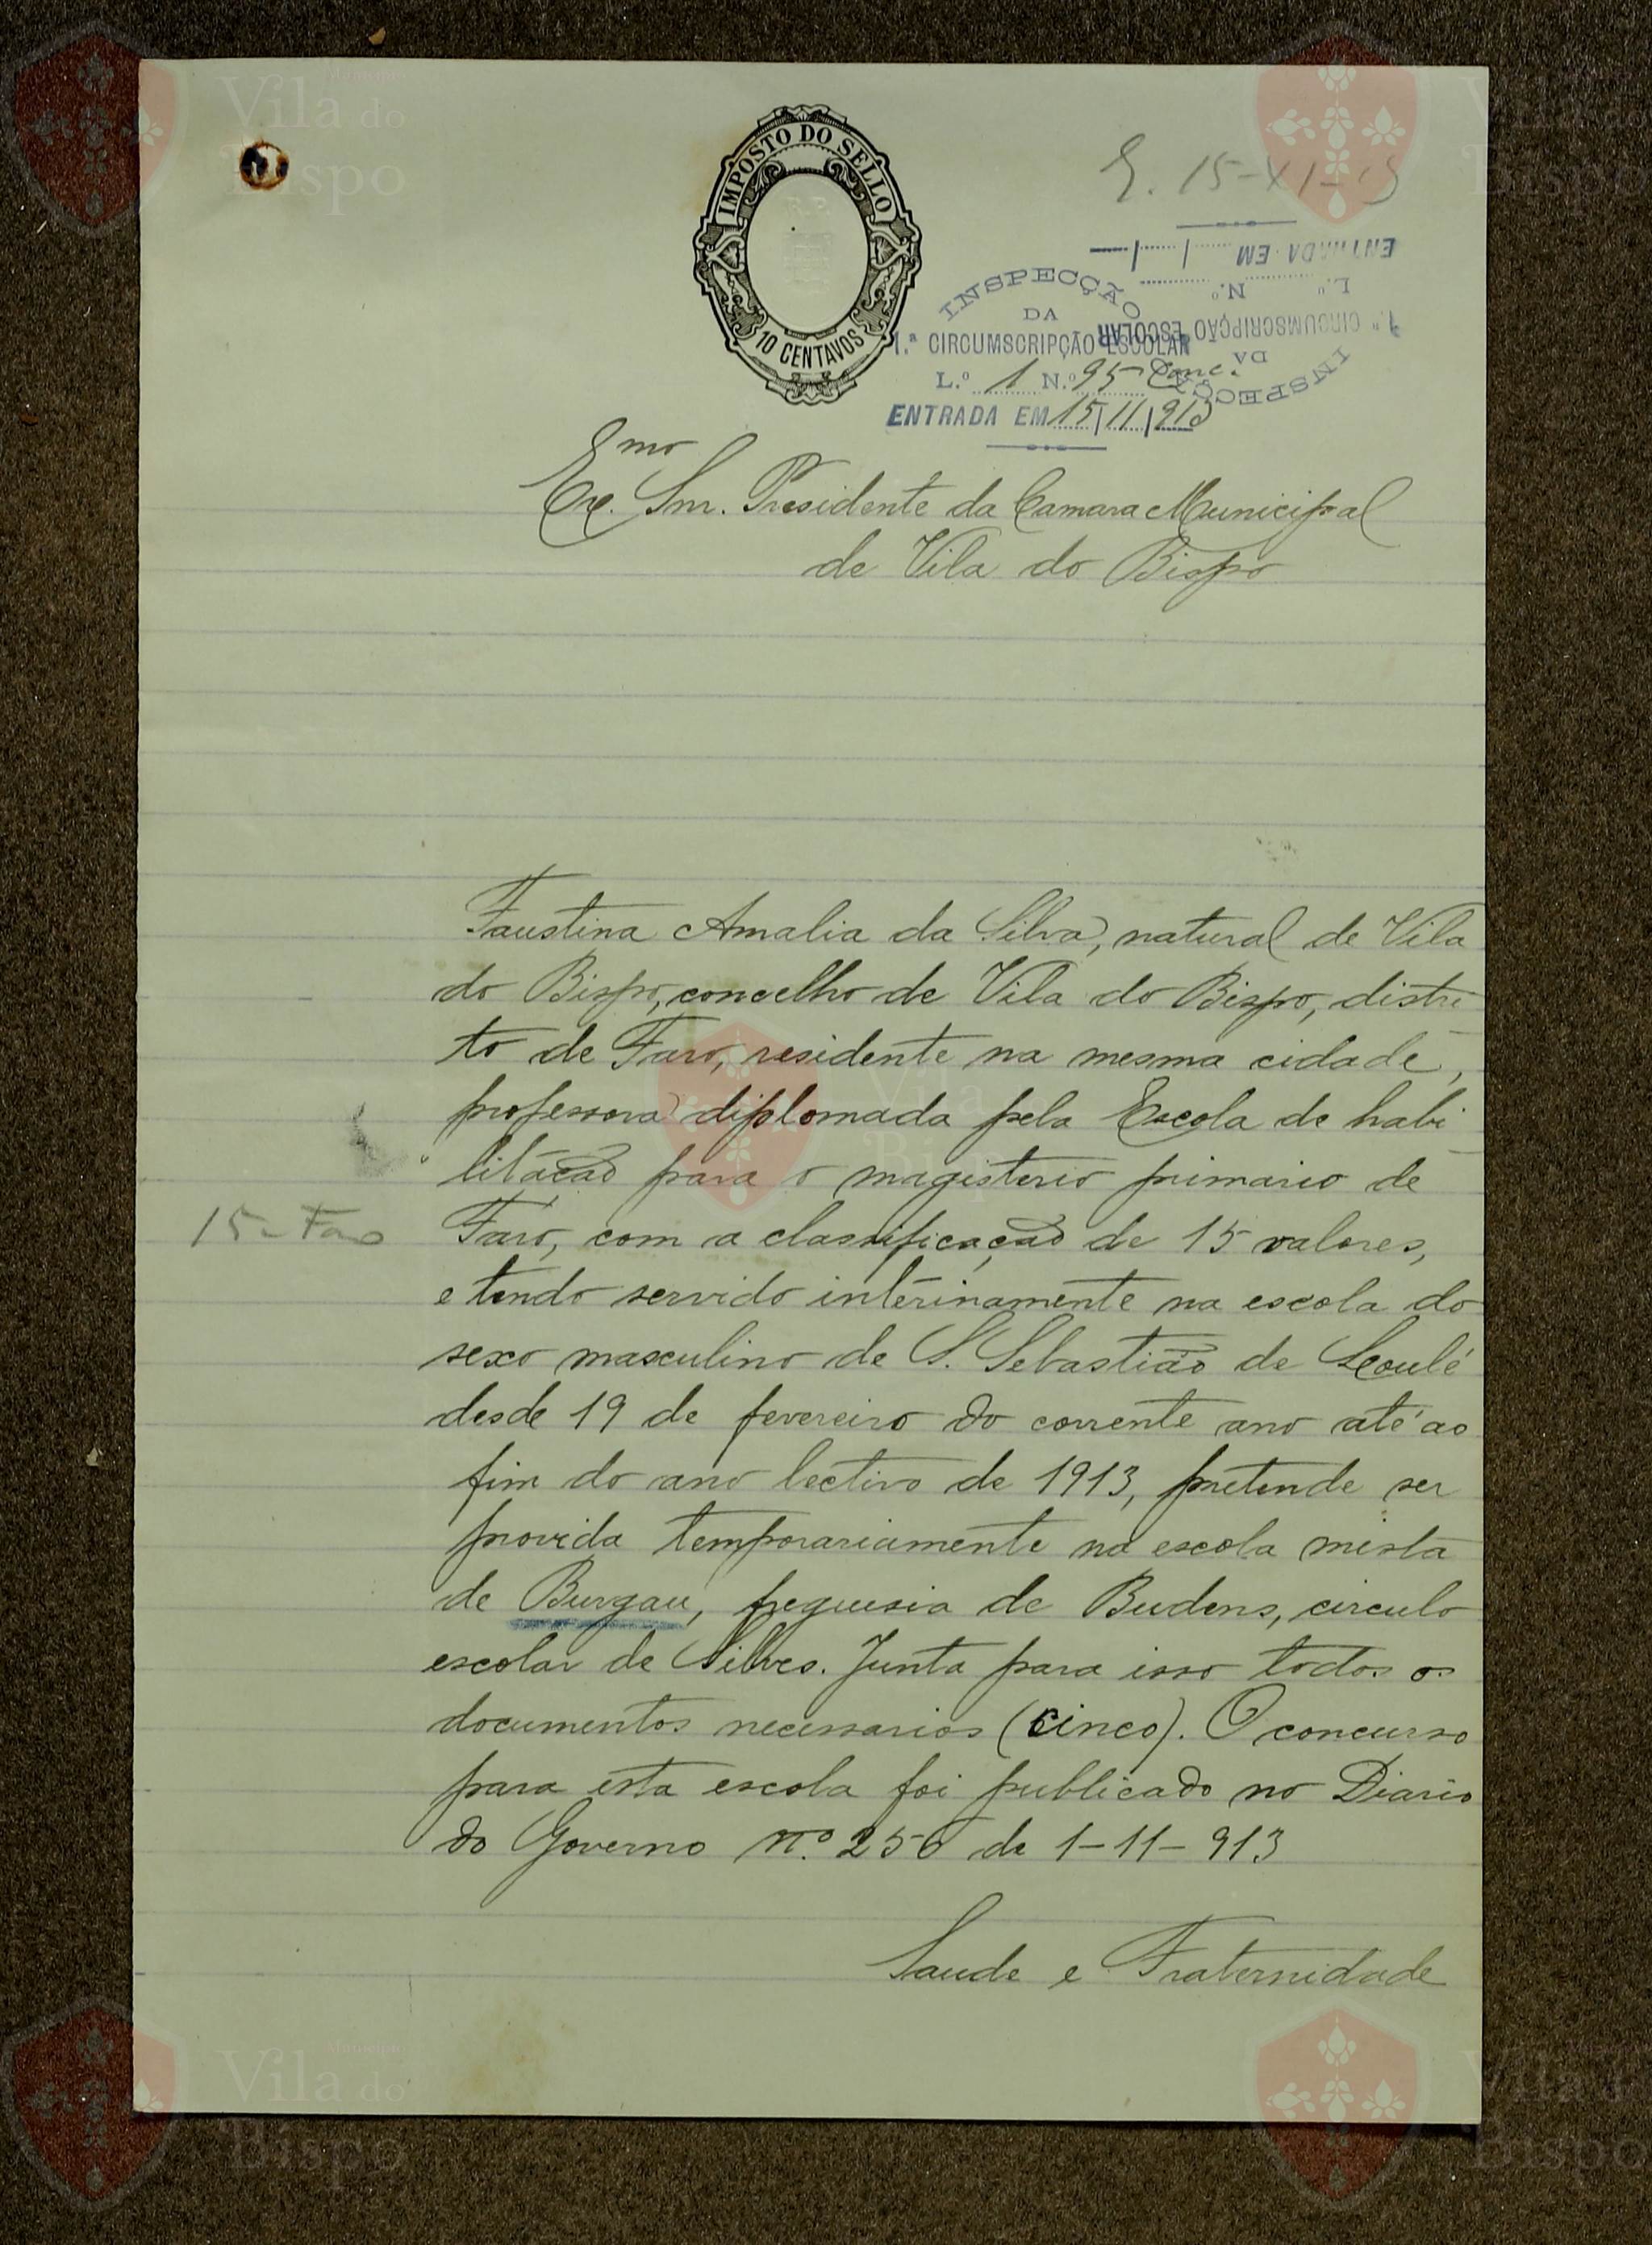 Município
Vila do
Bispo
IMPOSTO DO SELLO
10 CENTAVOS
E. 15-XI-13
ENTRADA EM
L.º N.º
1.ª CIRCUMSCRIPÇÃO ESCOLAR
DA
INSPECÇÃO
INSPECÇÃO
DA
1.ª CIRCUMSCRIPÇÃO ESCOLAR
L.º 1 N.º 95 Conc.
ENTRADA EM 15/11/913
Ex.mo Snr. Presidente da Camara Municipal
de Vila do Bispo
Faustina Amalia da Silva, natural de Vila
do Bispo, concelho de Vila do Bispo, distri
to de Faro, residente na mesma cidade,
professora diplomada pela Escola de habi
litação para o magisterio primario de
15-Faro
Faro, com a classificação de 15 valores,
e tendo servido interinamente na escola do
sexo masculino de S. Sebastião de Loulé
desde 19 de fevereiro do corrente ano até ao
fim do ano lectivo de 1913, pretende ser
provida temporariamente na escola mista
de Burgau, freguesia de Budens, circulo
escolar de Silves. Junta para isso todos os
documentos necessarios (cinco). O concurso
para esta escola foi publicado no Diario
do Governo n.º 256 de 1-11-913
Saude e Fraternidade
Município
Vila do
Bispo